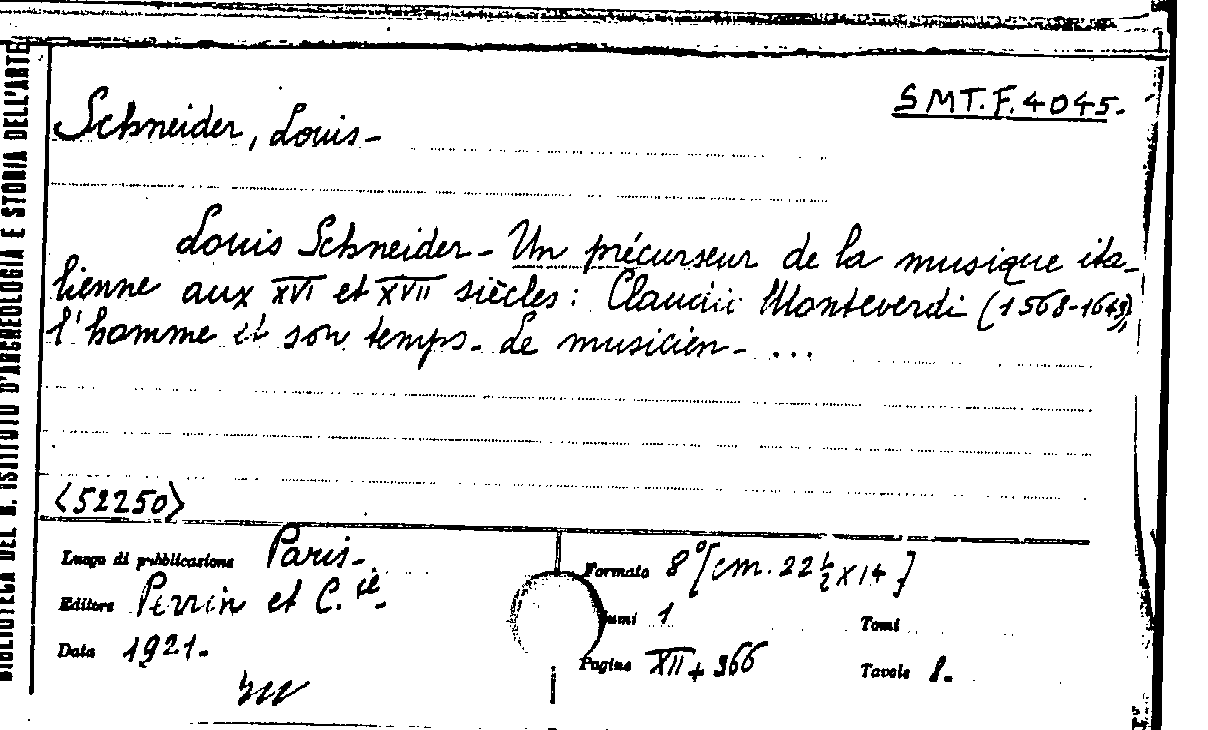 BIBLIOTECA DEL R. ISTITUTO D'ARCHEOLOGIA E STORIA DELL'ARTE
SMT.F.4045.
Schneider, Louis-
Louis Schneider - Un précurseur de la musique ita-
lienne aux XVI et XVII siècles: Claudio Monteverdi (1568-1643),
l'homme et son temps - Le musicien - ...
<52250>
Luogo di pubblicazione Paris-
Editore Perrin et C.ie-
Data 1921.
Formato 8° [cm. 22 1/2 x 14]
umi 1 Tomi
Pagine XII + 366 Tavole 8.